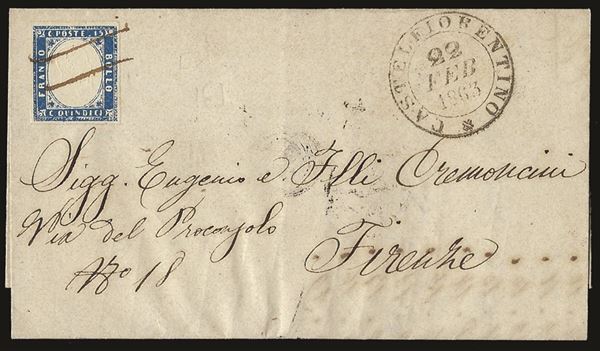 C POSTE 15
FRANCO
BOLLO
C QUINDICI
CASTELFIORENTINO
22
FEB
1863
Sigg. Eugenio e Flli Cremoncini
Via del Proconsolo
No 18
Firenze